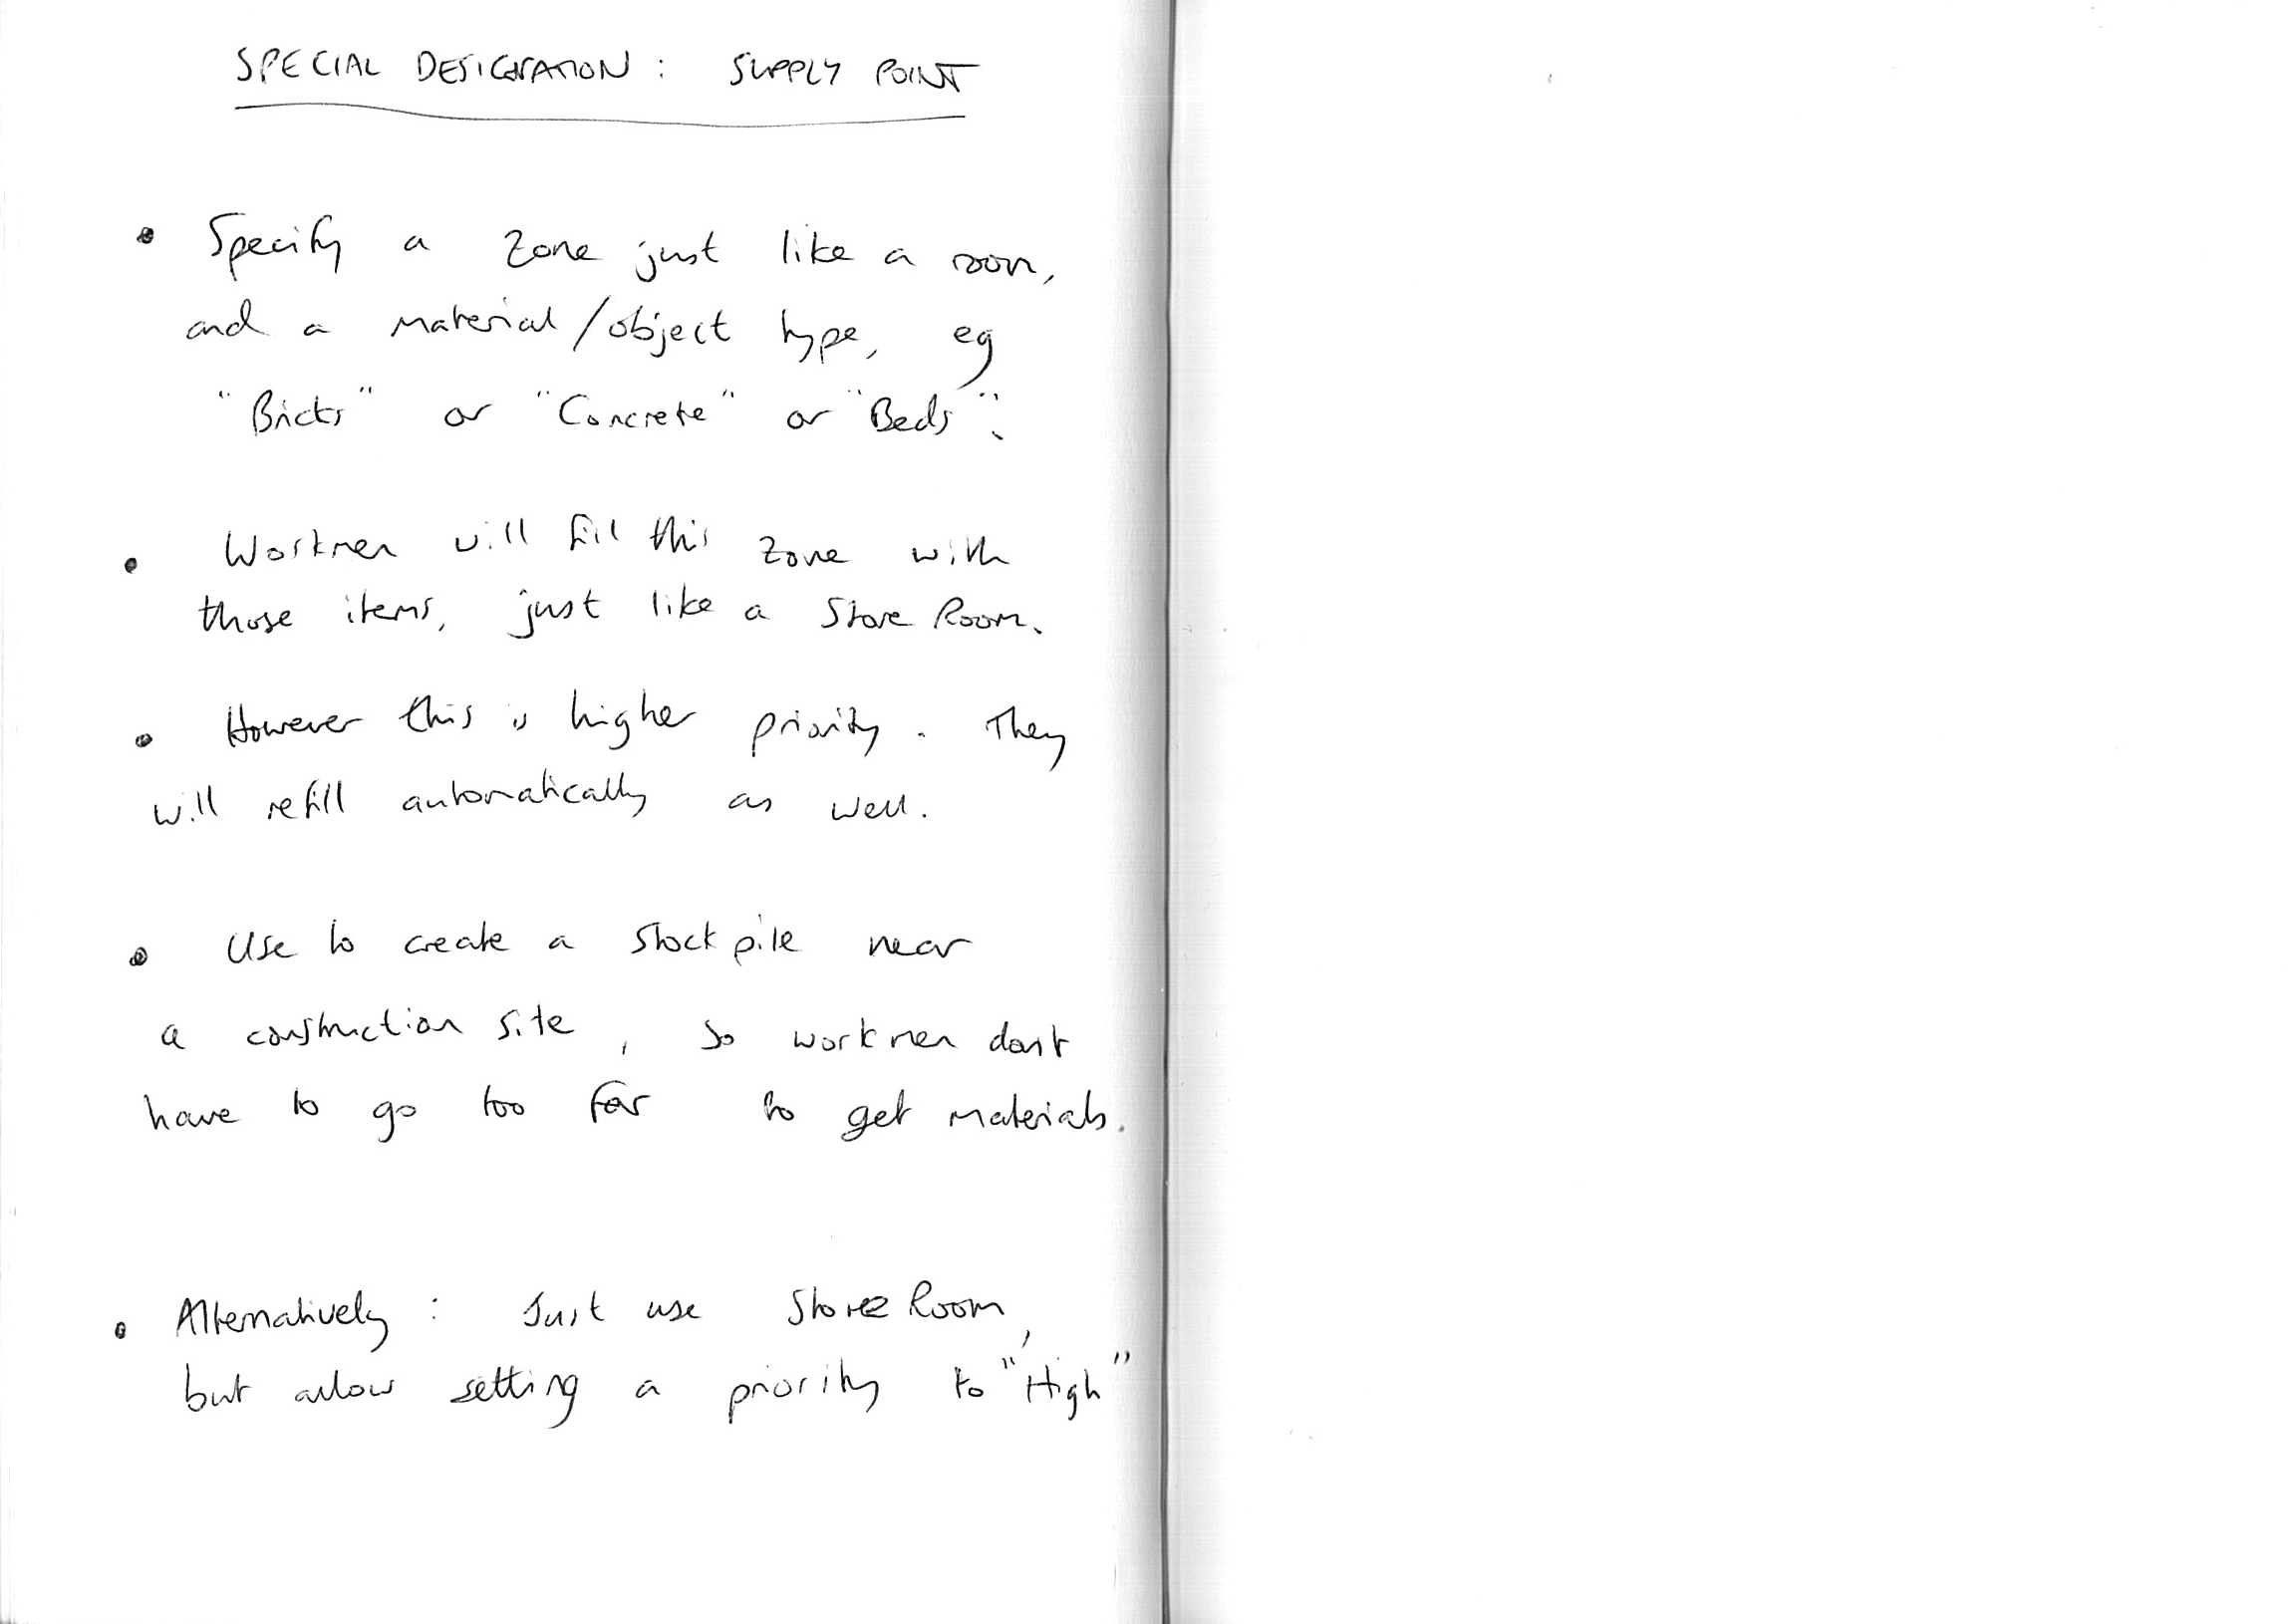 SPECIAL DESIGNATION : SUPPLY POINT
• Specify a zone just like a room,
and a material/object type, eg
"Bricks" or "Concrete" or "Beds".
• Workmen will fill this zone with
those items, just like a Store Room.
• However this is higher priority. They
will refill automatically as well.
• Use to create a stockpile near
a construction site, so workmen don't
have to go too far to get materials.
• Alternatively : Just use Store Room,
but allow setting a priority to "High"